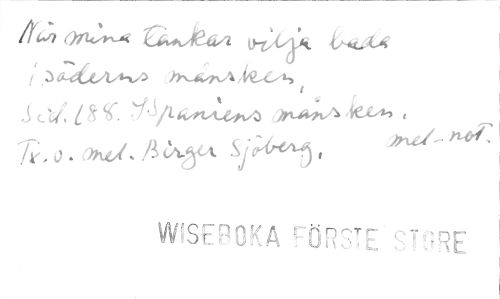 När mina tankar vilja bada
i söderns månsken,
Sid. 188. I Spaniens månsken.
Tx. o. mel. Birger Sjöberg. mel-not.
WISEBOKA FÖRSTE STORE